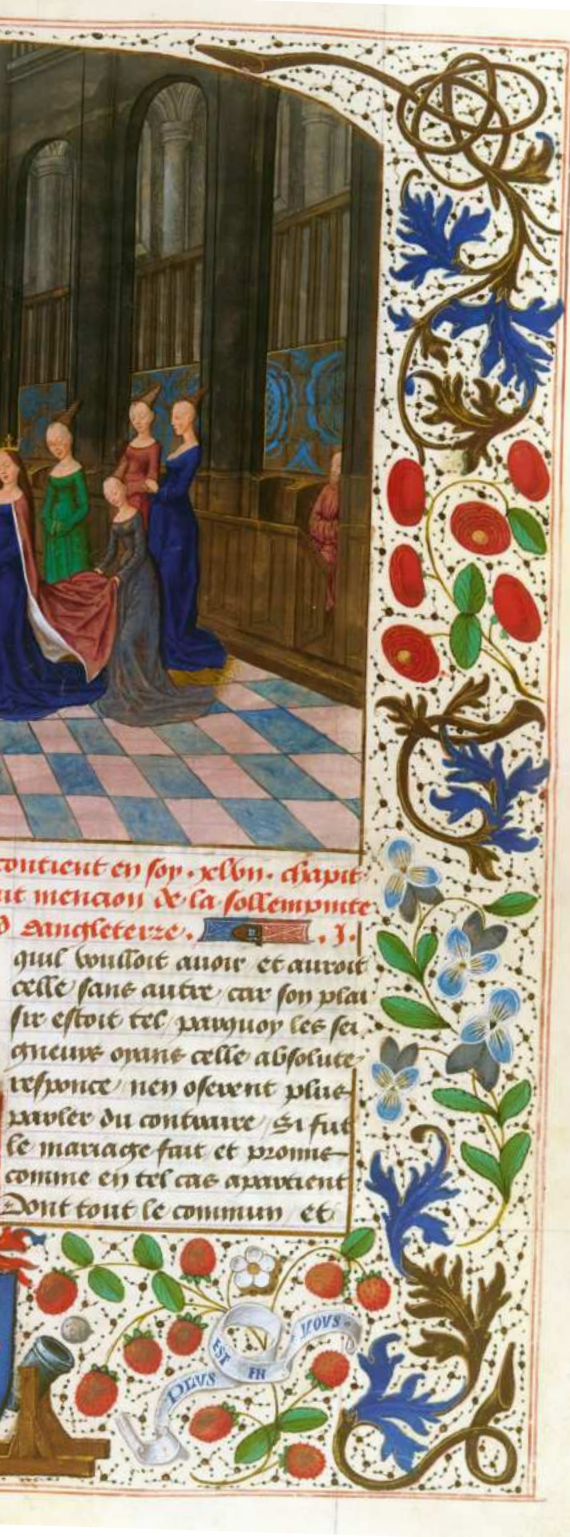 contient en soy . xlvii . chapit
it mencion de la sollempnite
dangleterre . . J .
quil voulloit avoir et auroit
celle sans autre / car son plai
sir estoit tel / parquoy les sei
gneurs oyans celle absolute
responce / nen oserent plus
parler du contraire / Si fut
le mariage fait et promis
comme en tel cas apartient
Dont tout le commun / et
PLVS
EST
EN
VOVS